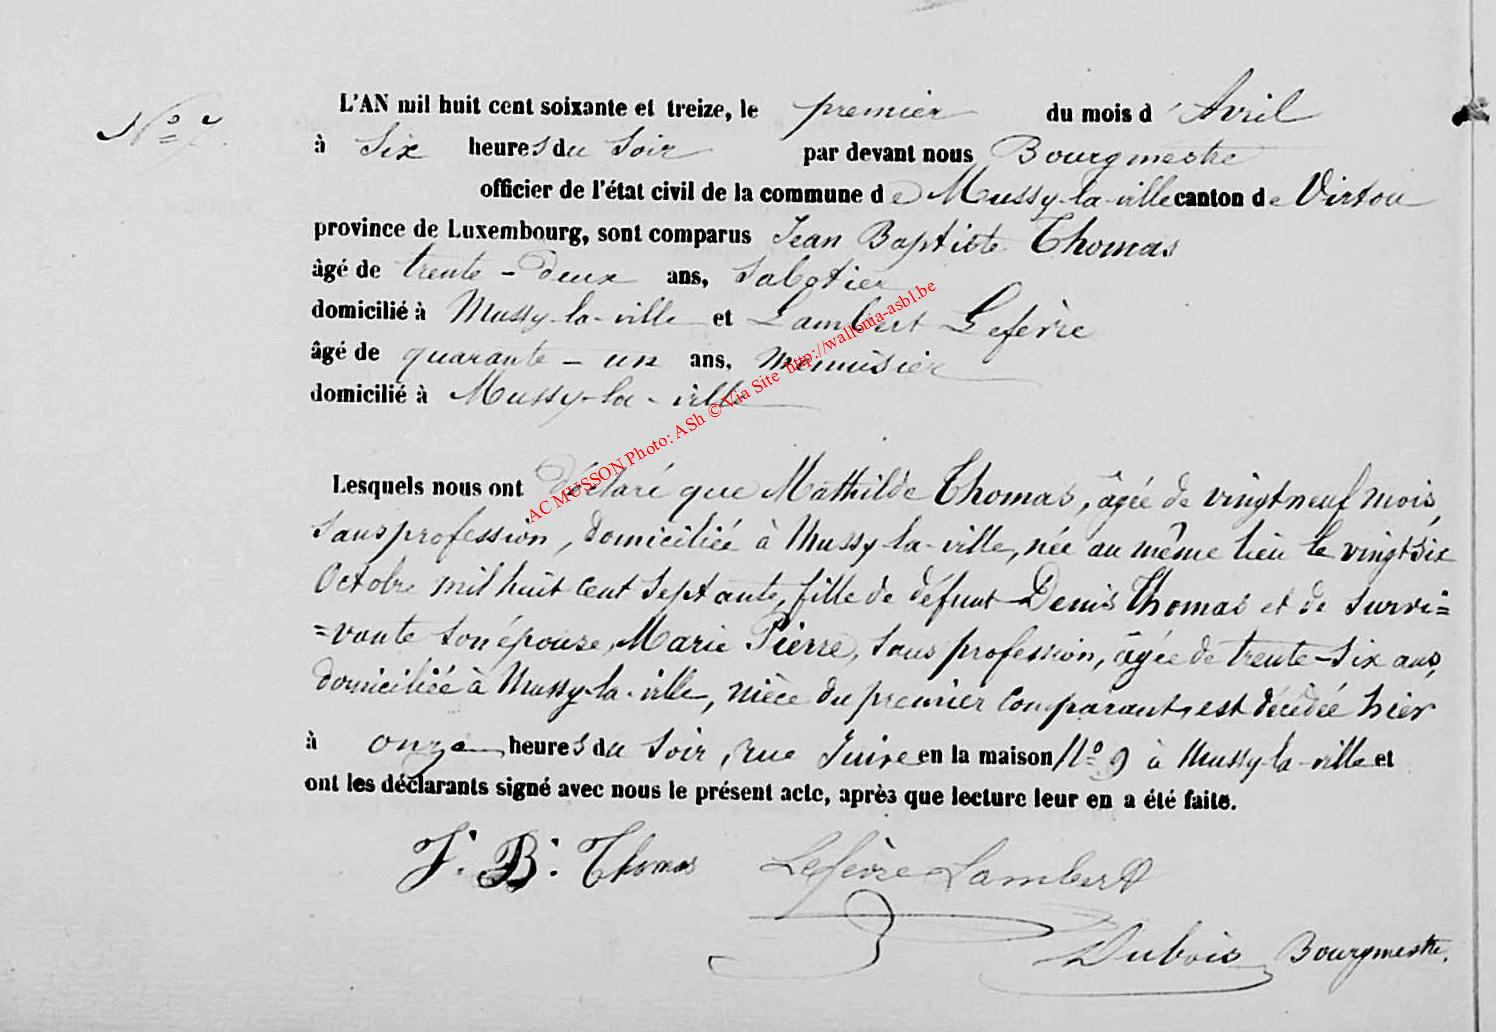 N° 7.
L'AN mil huit cent soixante et treize, le premier du mois d'Avril
à Six heures du Soir par devant nous Bourgmestre
officier de l'état civil de la commune de Mussy-la-ville canton de Virton
province de Luxembourg, sont comparus Jean Baptiste Thomas
âgé de trente-deux ans, Sabotier
domicilié à Mussy-la-ville et Lambert Lefèvre
âgé de quarante-un ans, Menuisier
domicilié à Mussy-la-ville
AC MUSSON Photo: ASh © Via Site http://wallonia-asbl.be
Lesquels nous ont déclaré que Mathilde Thomas, âgée de vingt neuf mois,
Sans profession, domiciliée à Mussy-la-ville, née au même lieu le vingt Six
Octobre mil huit Cent Septante, fille de défunt Denis Thomas et de Survi=
=vante Son épouse, Marie Pierre, Sans profession, âgée de trente-Six ans,
domiciliée à Mussy-la-ville, nièce du premier Comparant, est décédée hier
à onze heures du Soir, rue en la maison N° 9 à Mussy-la-ville et
ont les déclarants signé avec nous le présent acte, après que lecture leur en a été faite.
J. B. Thomas Lefèvre Lambert
Dubois Bourgmestre.